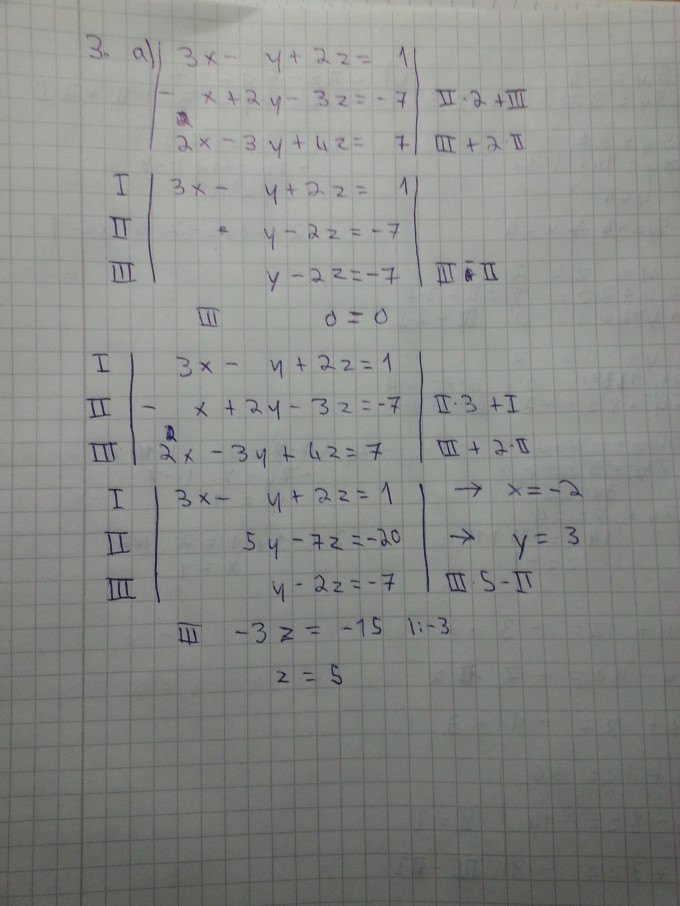 3. a) 3x - y + 2z = 1
- x + 2y - 3z = -7 II · 2 + III
2x - 3y + 4z = 7 III + 2 · II
I 3x - y + 2z = 1
II y - 2z = -7
III y - 2z = -7 III - II
III 0 = 0
I 3x - y + 2z = 1
II - x + 2y - 3z = -7 II · 3 + I
III 2x - 3y + 4z = 7 III + 2 · II
I 3x - y + 2z = 1 → x = -2
II 5y - 7z = -20 → y = 3
III y - 2z = -7 III · 5 - II
III -3z = -15 |: -3
z = 5